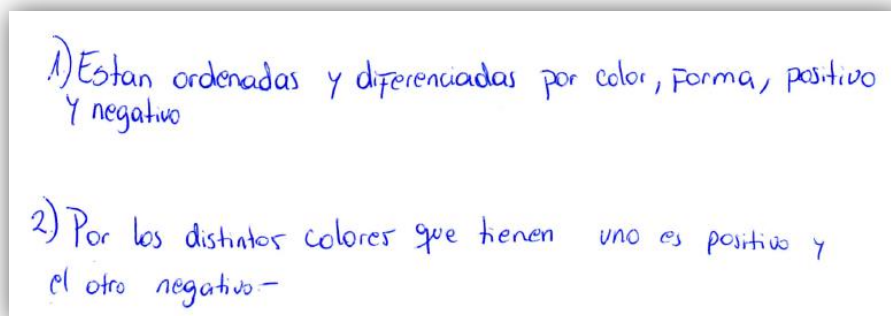 1) Estan ordenadas y diferenciadas por color, Forma, positivo
y negativo
2) Por los distintos colores que tienen uno es positivo y
el otro negativo-